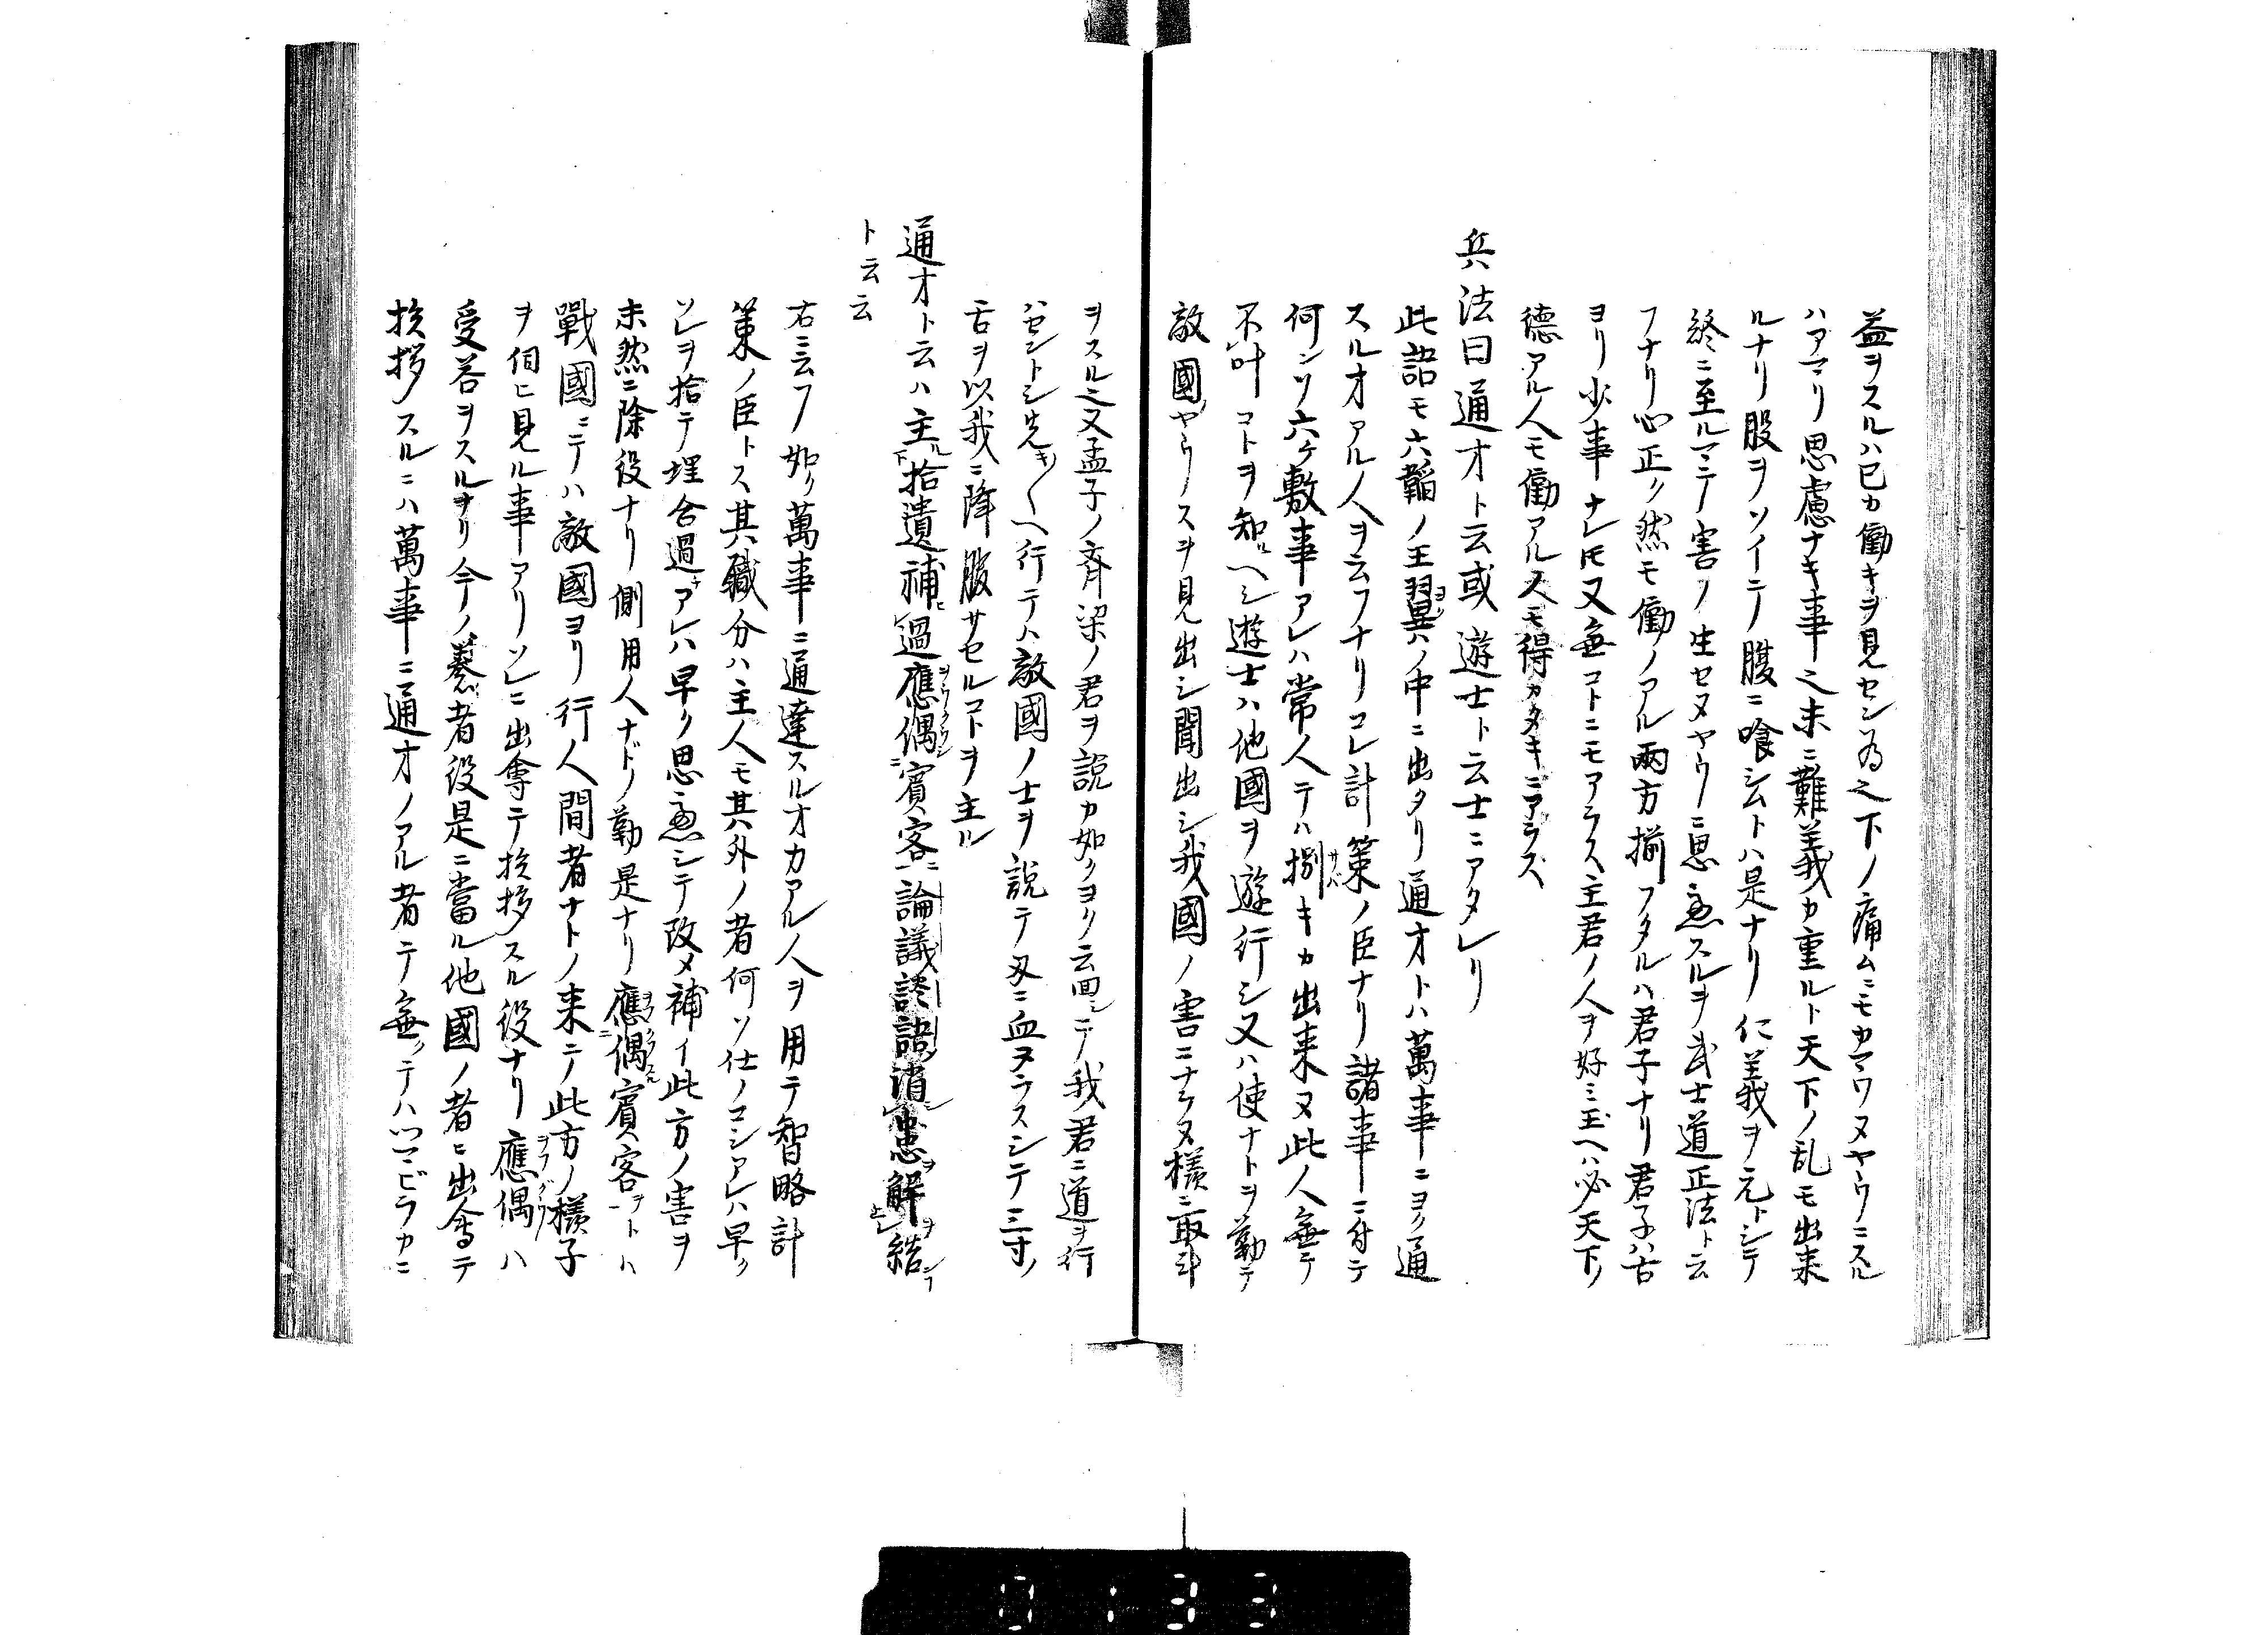 益ヲスルハ已カ働キヲ見セン為之下ノ痛ムニモカマワヌヤウニスル
ハアマリ思慮ナキ事之末ニ難義カ重ルト天下ノ乱モ出来
ルナリ股ヲソイテ腹ニ喰シムトハ是ナリ仁義ヲ元トシテ
終ニ至ルマテ害ノ生セヌヤウニ思慮スルヲ武士道正法ト云
フナリ心正ク然モ働ノアル両方揃フタルハ君子ナリ君子ハ古
ヨリ少事ナレ𪜈又無コトニモアラス主君ノ人ヲ好ミ玉ヘハ必天下ノ
徳アル人モ働アル人モ得カタキニアラズ
兵法曰通才ト云或遊士ト云士ニアタレリ
此語モ六韜ノ王翼ノ中ニ出タリ通才トハ萬事ニヨク通
スル才アル人ヲ云フナリコレ計策ノ臣ナリ諸事ニ付テ
何ンソ六ケ敷事アレハ常人テハ捌キカ出来ヌ此人無テ
不叶コトヲ知ヘシ遊士ハ他國ヲ遊行シ又ハ使ナトヲ勤テ
敵國ノヤウスヲ見出シ聞出シ我國ノ害ニナラヌ様ニ取斗
ヲスル之又孟子ノ斉梁ノ君ヲ説カ如クヨク云回シテ我君ニ道ヲ行
ハセントシ先キ〱ヘ行テハ敵國ノ士ヲ説テ刄ニ血ヌラスシテ三寸ノ
舌ヲ以我ニ降服サセルコトヲ主ル
通才ト云ハ主ル下拾遺補過應偶賓客論議談語消患解結
ト云云
右ニ云フ如ク萬事ニ通達スル才カアル人ヲ用テ智略計
策ノ臣トス其職分ハ主人モ其外ノ者何ソ仕ノコシアレハ早ク
ソレヲ拾テ埋合過アレハ早ク思慮シテ改メ補イ此方ノ害ヲ
未然ニ除役ナリ側用人ナドノ勤是ナリ應偶賓客ヲトハ
戰國ニテハ敵國ヨリ行人間者ナトノ来テ此方ノ様子
ヲ伺ヒ見ル事アリソレニ出會テ挨拶スル役ナリ應偶ハ
受答ヲスルナリ今ノ奏者役是ニ當ル他國ノ者ヒ出會テ
挨拶スルニハ萬事ニ通才ノアル者テ無クテハツマビラカニ
0133